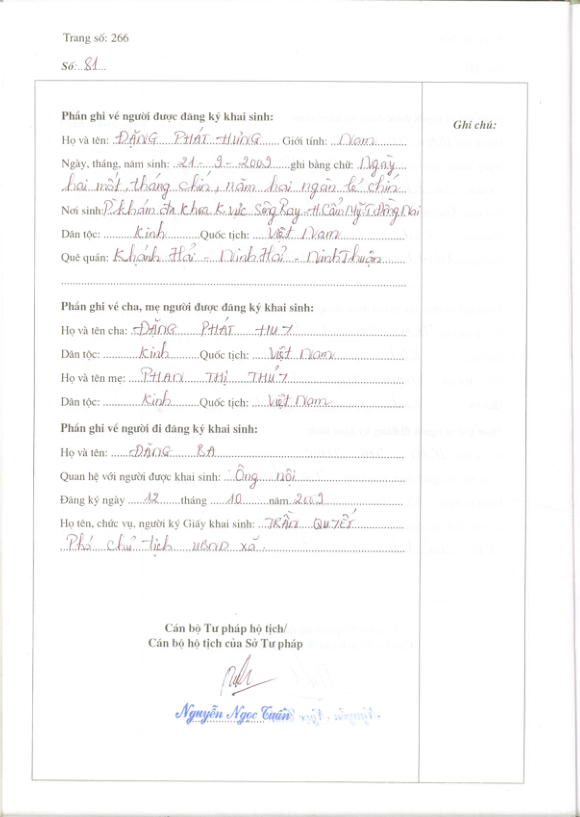 Trang số: 266
Số: 81
Phần ghi về người được đăng ký khai sinh:
Ghi chú:
Họ và tên: ĐẶNG PHÁT HƯNG Giới tính: Nam
Ngày, tháng, năm sinh: 21 - 9 - 2009 ghi bằng chữ: Ngày
hai mốt, tháng chín, năm hai ngàn lẻ chín
Nơi sinh: P. khám đa khoa K. vực Sông Ray - H. Cẩm Mỹ, T. Đồng Nai
Dân tộc: Kinh Quốc tịch: Việt Nam
Quê quán: Khánh Hải - Ninh Hải - Ninh Thuận
Phần ghi về cha, mẹ người được đăng ký khai sinh:
Họ và tên cha: ĐẶNG PHÁT HUY
Dân tộc: Kinh Quốc tịch: Việt Nam
Họ và tên mẹ: PHAN THỊ THÚY
Dân tộc: Kinh Quốc tịch: Việt Nam
Phần ghi về người đi đăng ký khai sinh:
Họ và tên: ĐẶNG BA
Quan hệ với người được khai sinh: Ông nội
Đăng ký ngày 12 tháng 10 năm 2009
Họ tên, chức vụ, người ký Giấy khai sinh: TRẦN QUYẾT
Phó chủ tịch UBND xã.
Cán bộ Tư pháp hộ tịch/
Cán bộ hộ tịch của Sở Tư pháp
Nguyễn Ngọc Tuấn